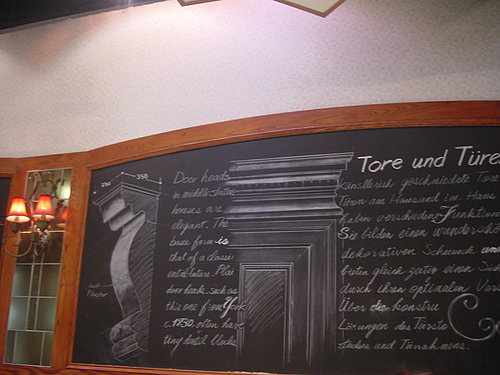 150 350
Door heads
in middle-states
houses are
elegant. The
basic form is
that of a classi
entablature. Plai
door heads, such as
this one from York
c. 1830, often have
tiny dentil blocks
Tore und Türe
Künstlerisch geschmiedete Tore
Türen am Haus und im Haus
haben verschiedene Funktion
Sie bilden einen wunderschö
dekorativen Schmuck un
bieten gleich zeitig einen
durch ihren optimalen
Über die konstru
Lösungen des Türsto
stockes und Türrahmens.